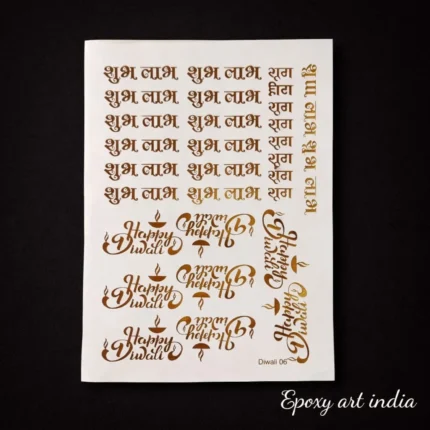 शुभ लाभ शुभ लाभ
शुभ लाभ शुभ लाभ
शुभ लाभ शुभ लाभ
शुभ लाभ शुभ लाभ
शुभ लाभ शुभ लाभ
शुभ लाभ शुभ लाभ
शुभ लाभ शुभ लाभ
Happy
Diwali
Happy
Diwali
Happy
Diwali
Happy
Diwali
Happy
Diwali
Happy
Diwali
Happy
Diwali
Happy
Diwali
Diwali 06
Epoxy art india